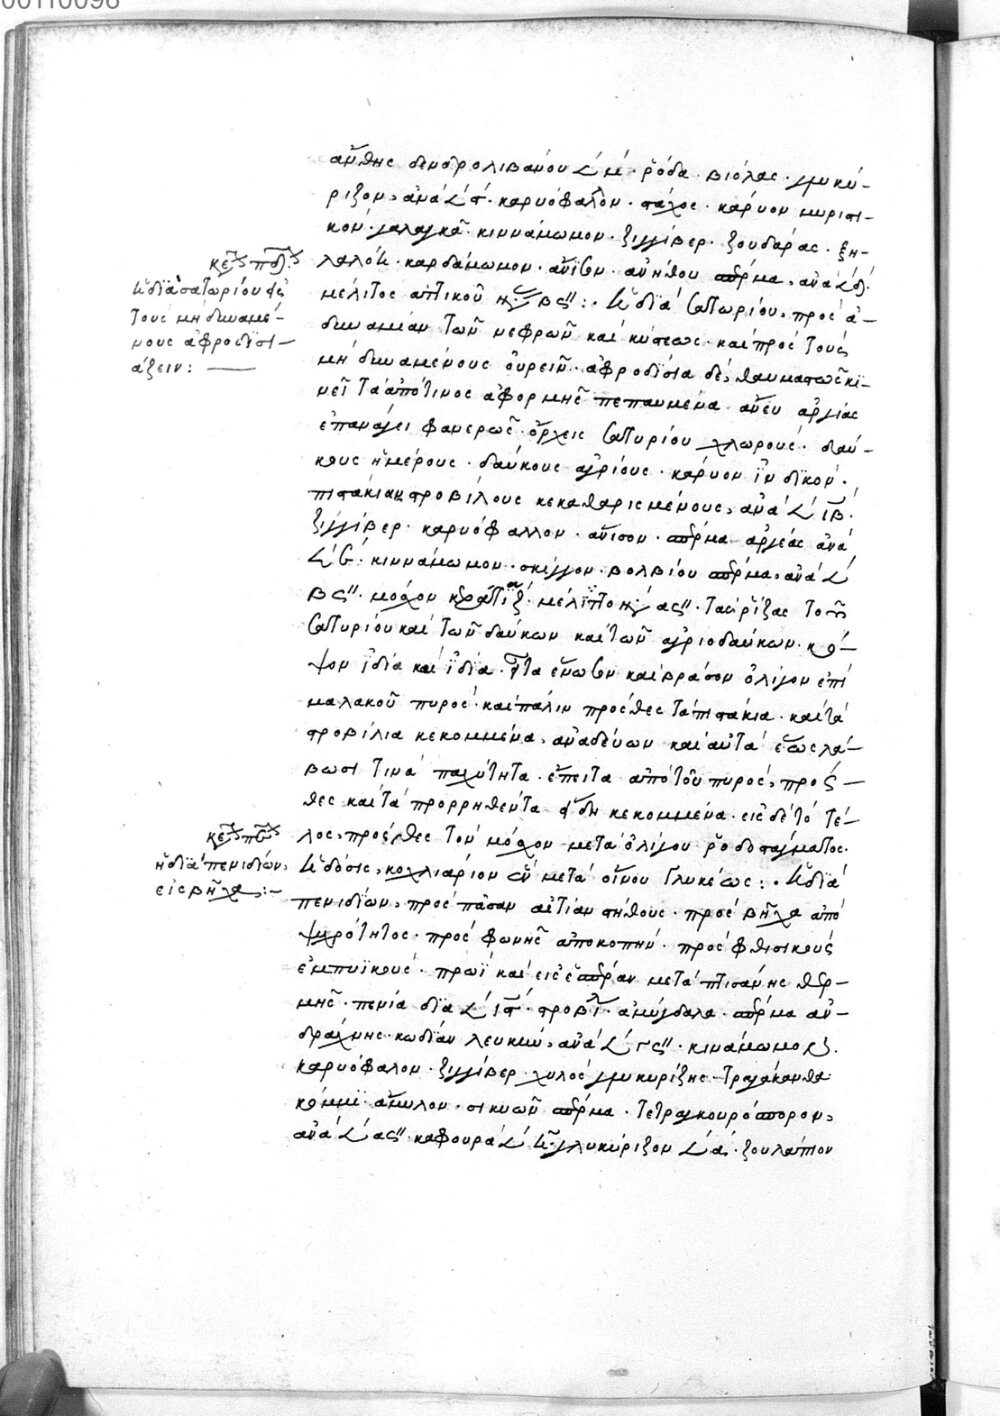 00110096
ἄνθης δενδρολιβάνου ῥόδα · βιόλας · γλυκύ-
ριζον, ἀνὰ καρυόφαλλον · στάχος · κάρυον μυριστι-
κόν · γαλαγκᾶ · κιννάμωμον · ζιγγίβερ · ζουδαράς · ξυ-
λαλόη · καρδάμωμον · ἄνισον · ἀνήθου σπέρμα, ἀνὰ
μέλιτος ἀττικοῦ ἡ διὰ σατυρίου, πρὸς ἀ-
δυναμίαν τῶν νεφρῶν καὶ κύστεως · καὶ πρὸς τοὺς
μὴ δυναμένους οὐρεῖν · ἀφροδίσια δὲ, θαυμαστῶς κι-
νεῖ τὰ ἀπό τινος ἀφορμῆς πεπαυμένα ἄνευ ἀργίας
ἐπανάγει φανερῶς · ὄρχεις σατυρίου χλωρούς · δαύ-
κους ἡμέρους · δαύκους ἀγρίους · κάρυον ἰνδικόν ·
πιστάκια, στροβίλους κεκαθαρισμένους, ἀνὰ ιβ ·
ζιγγίβερ · καρυόφαλλον · ἄνισον · σπέρμα ἀνὰ
κιννάμωμον · σκίγγον · βολβίου σπέρμα, ἀνὰ
μόσχον μέλιτος τὰς ῥίζας τοῦ
σατυρίου καὶ τῶν δαύκων καὶ τῶν ἀγριοδαύκων · κό-
ψον ἰδίᾳ καὶ ἰδίᾳ · εἶτα ἕνωσον καὶ βράσον ὀλίγον ἐπὶ
μαλακοῦ πυρὸς · καὶ πάλιν πρόσθες τὰ πιστάκια · καὶ τὰ
στροβίλια κεκομμένα, ἀναδεύων καὶ αὐτὰ ἕως λά-
βωσι τινὰ παχύτητα · ἔπειτα ἀπὸ τοῦ πυρὸς, πρόσ-
θες καὶ τὰ προρρηθέντα εἴδη κεκομμένα · εἰς δὲ τὸ τέ-
λος, πρόσθες τὸν μόσχον μετὰ ὀλίγου ῥοδοστάγματος ·
ἡ δόσις, κοχλιάριον ἓν μετὰ οἴνου γλυκέως : · ἡ διὰ
πενιδίων, πρὸς πᾶσαν αἰτίαν στήθους · πρὸς βῆχα ἀπὸ
ψυχρότητος · πρὸς φωνῆς ἀποκοπήν · πρὸς φθισικοὺς
ἐμπυϊκούς · πρωῒ καὶ εἰς ἑσπέραν μετὰ πτισάνης θερ-
μῆς · πενίδια στροβίλ ἀμύγδαλα · σπέρμα ἀν-
δράχνης · κωδίαν λευκήν, ἀνὰ κινάμωμον
καρυόφαλον · ζιγγίβερ · χυλὸς γλυκυρίζης · τραγάκανθα
κόμμι · ἄμυλον · σικυῶν σπέρμα · τετραγκουρόσπορον,
ἀνὰ καφουρὰ γλυκύριζον ζουλάπιον
ἡ διὰ σατυρίου εἰς
τοὺς μὴ δυναμέ-
νους ἀφροδισι-
άζειν : —
ἡ διὰ πενιδίων,
εἰς βῆχα : –